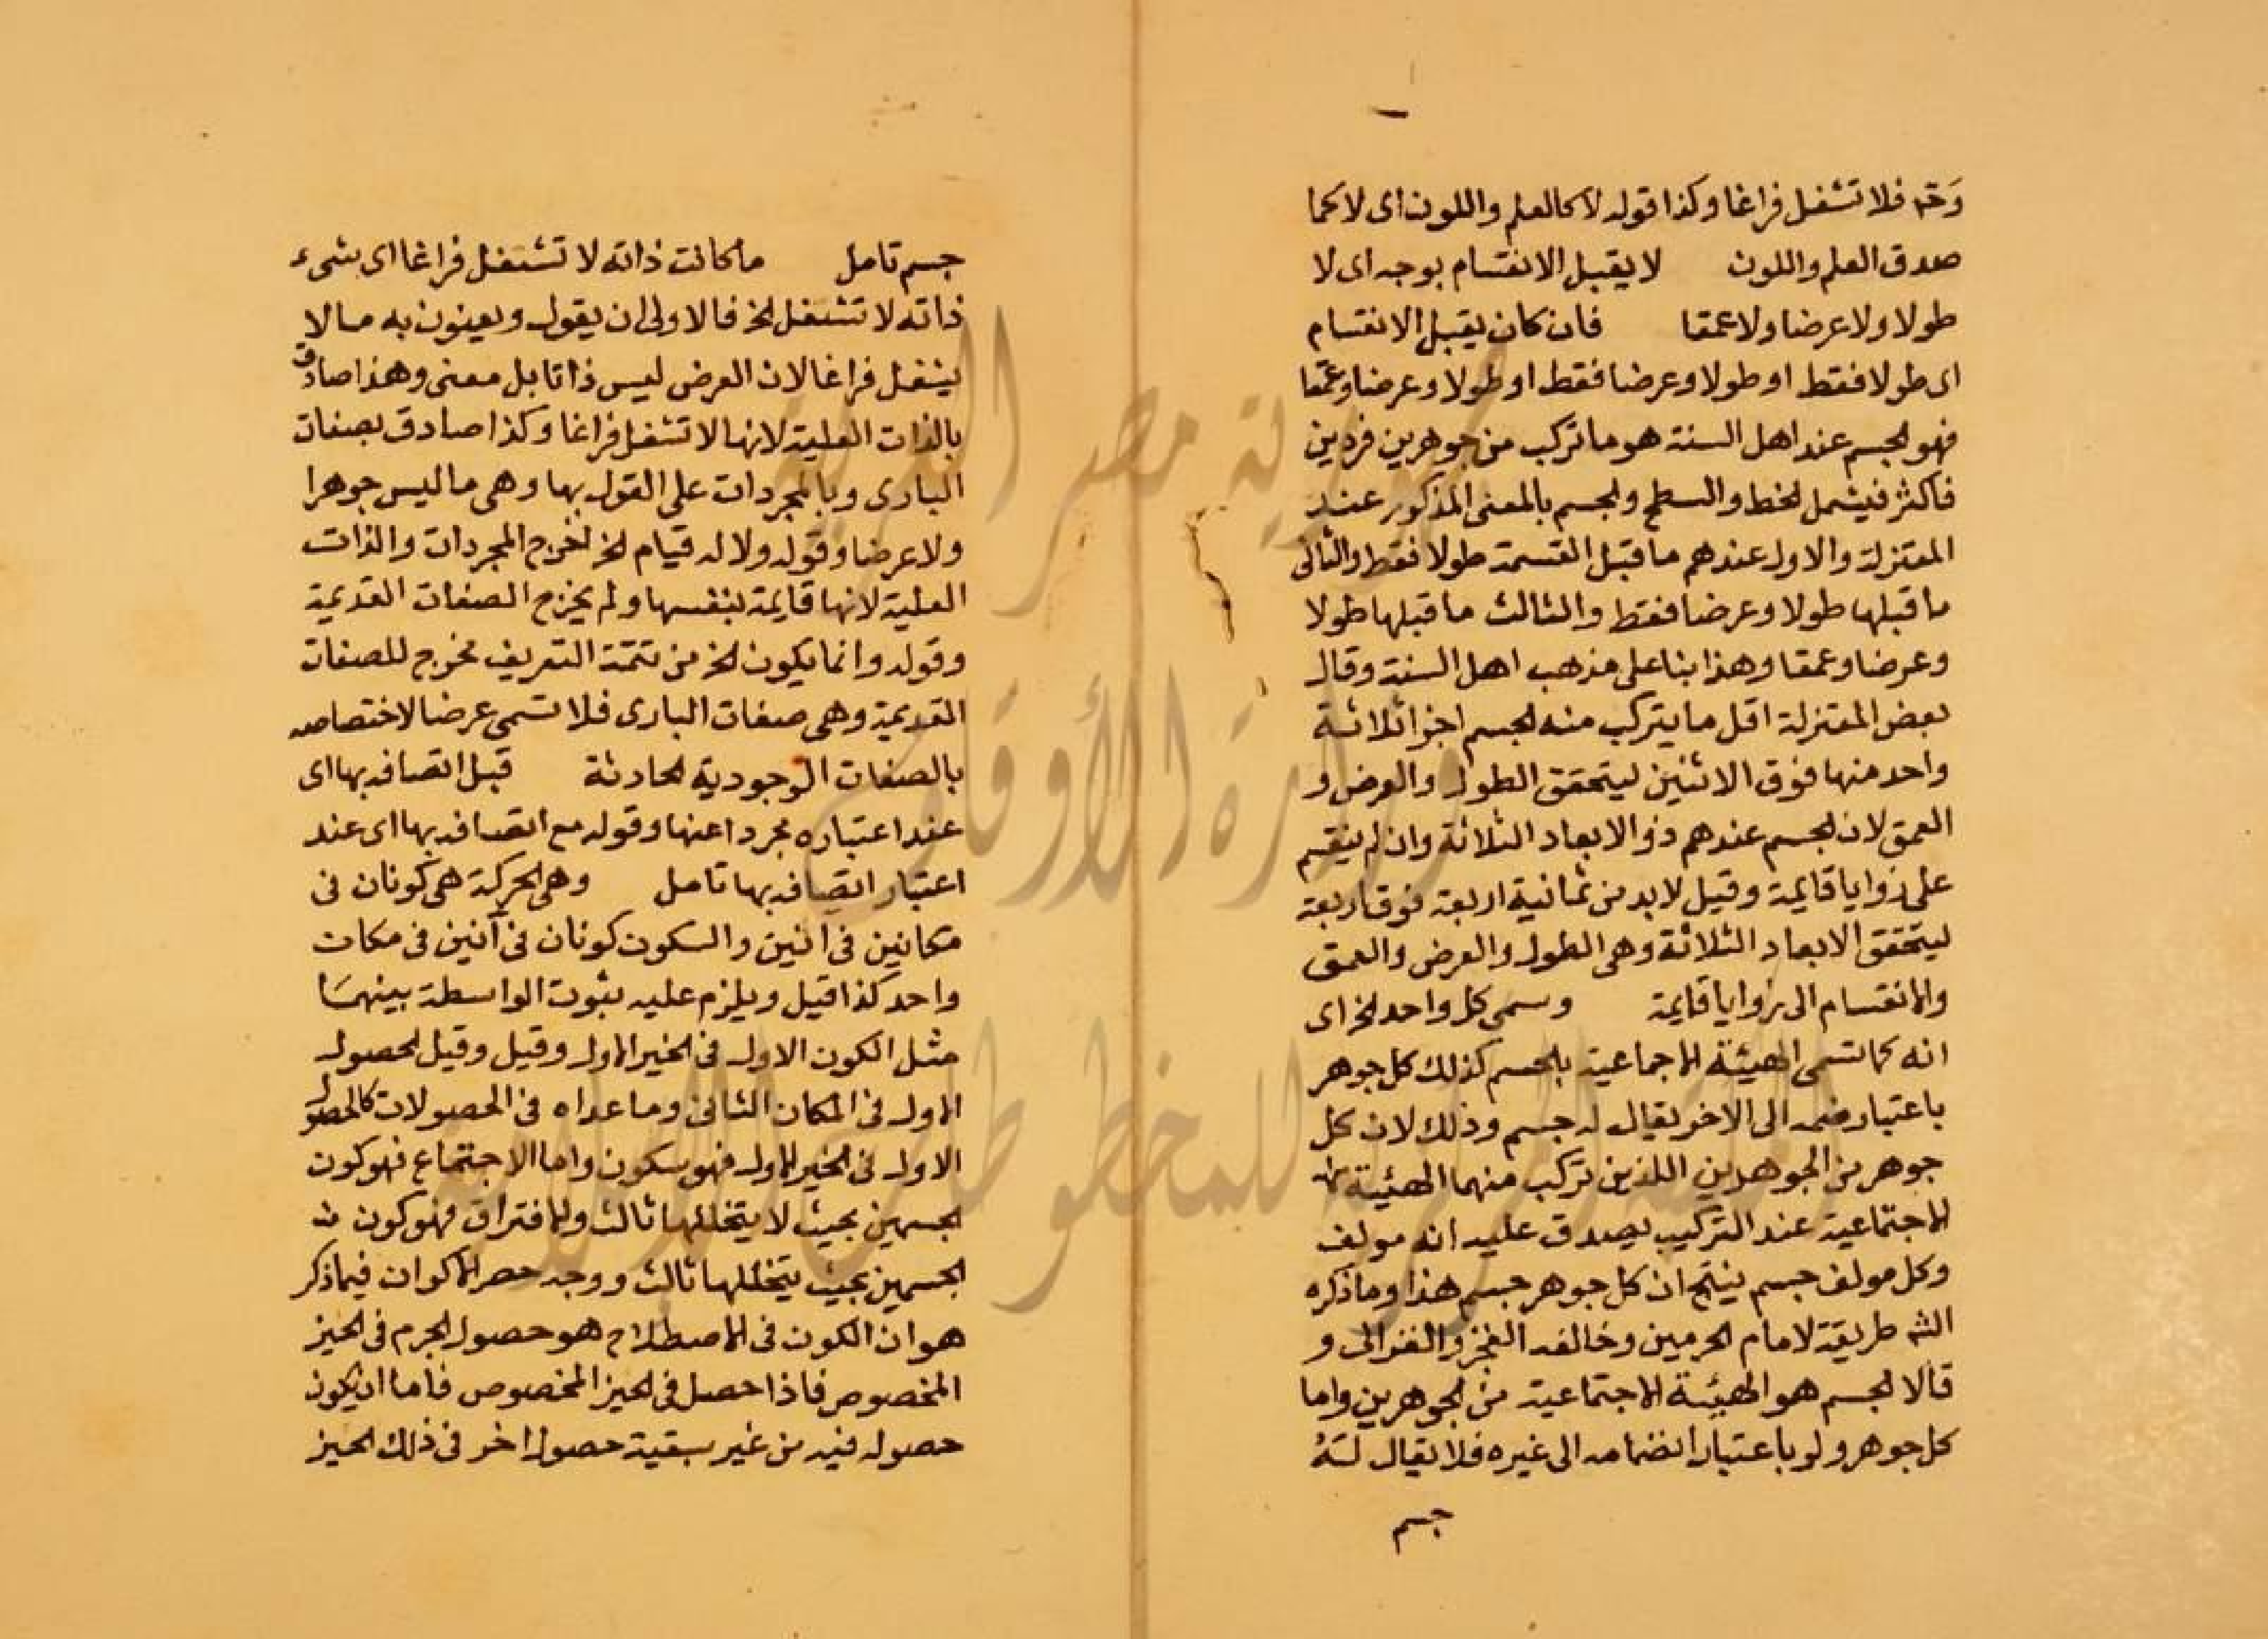 وحمه فلا تشغل فراغا وكذا قوله لا كالعلم واللون اى لا كما
صدق العلم واللون لا يقبل الانقسام بوجه اى لا
طولا ولا عرضا ولا عمقا فان كان يقبل الانقسام
اى طولا فقط او طولا وعرضا فقط او طولا وعرضا وعمقا
فهو الجسم عند اهل السنة هو ما تركب من جوهرين فردين
فاكثر فيشمل الخط والسطح والجسم بالمعنى المذكور عند
المعتزلة والاول عندهم ما قبل القسمة طولا فقط والثانى
ما قبلها طولا وعرضا فقط والثالث ما قبلها طولا
وعرضا وعمقا وهذا بنا على مذهب اهل السنة وقال
بعض المعتزلة اقل ما يتركب منه الجسم اجزا ثلاثة
واحد منها فوق الاثنين ليتحقق الطول والعرض و
العمق لان الجسم عندهم ذو الابعاد الثلاثة وان لم ينقسم
على زوايا قايمة وقيل لا بد من ثمانية اربعة فوق اربعة
ليتحقق الابعاد الثلاثة وهى الطول والعرض والعمق
والانقسام الى زوايا قايمة وسمى كل واحد الخ اى
انه كما تسمى الهيئة الاجماعية بالجسم كذلك كل جوهر
باعتبار ضمه الى الاخر يقال له جسم وذلك لان كل
جوهر من الجوهرين اللذين تركب منهما الهئية
الاجتماعية عند التركيب يصدق عليه انه مولف
وكل مولف جسم ينتج ان كل جوهر جسم هذا وما ذكره
الشه طريقة لامام الحرمين وخالفه الفخر والغزالى و
قالا الجسم هو الهيئة الاجتماعية من الجوهرين واما
كل جوهر ولو باعتبار انضمامه الى غيره فلا يقال له
جسم
جسم تامل ما كانت ذاته لا تشغل فراغا اى بشىء
ذاته لا تشغل الخ فالاولى ان يقول ويعنون به ما لا
يشغل فراغا لان العرض ليس ذاتا بل معنى وهذا صادق
بالذات العلية لانها لا تشغل فراغا وكذا صادق بصفات
البارى وبالمجردات على القول بها وهى ما ليس جوهرا
ولا عرضا وقوله ولا له قيام الخ اخرج المجردات والذات
العلية لانها قايمة بنفسها ولم يخرج الصفات القديمة
وقوله وانما يكون الخ من تتمة التعريف مخرج للصفات
القديمة وهى صفات البارى فلا تسمى عرضا لاختصاصه
بالصفات الوجودية الحادثة قبل اتصافه بها اى
عند اعتباره مجردا عنها وقوله مع اتصافه بها اى عند
اعتبار اتصافه بها تامل وهى الحركة هى كونان فى
مكانين فى انين والسكون كونان فى آنين فى مكان
واحد كذا قيل ويلزم عليه ثبوت الواسطة بينهما
مثل الكون الاول فى الحيز الاول وقيل وقيل الحصول
الاول فى المكان الثانى وما عداه فى الحصولات كالحصول
الاول فى الحيز الاول فهو سكون واما الاجتماع فهو كون
الجسمين بحيث لا يتخللهما ثالث والافتراق فهو كون
الجسمين بحيث يتخللهما ثالث ووجه حصر الاكوان فيما ذكر
هو ان الكون فى الاصطلاح هو حصول الجرم فى الحيز
المخصوص فاذا حصل فى الحيز المخصوص فاما ان يكون
حصوله فيه من غير سبقية حصول اخر فى ذلك الحيز